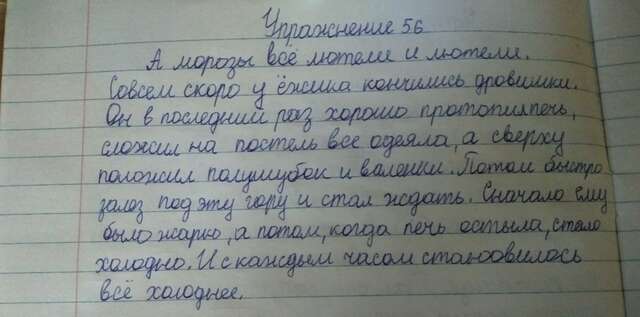 Упражнение 56
А морозы всё лютели и лютели.
Совсем скоро у ёжика кончились дровишки.
Он в последний раз хорошо протопил печь,
сложил на постель все одеяла, а сверху
положил полушубок и валенки. Потом быстро
залез под эту гору и стал ждать. Сначало ему
было жарко, а потом, когда печь остыла, стало
холодно. И с каждым часом становилось
всё холоднее.